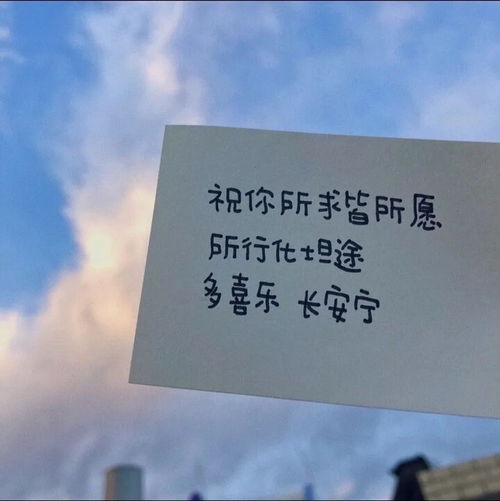 祝你所求皆所愿
所行化坦途
多喜乐 长安宁